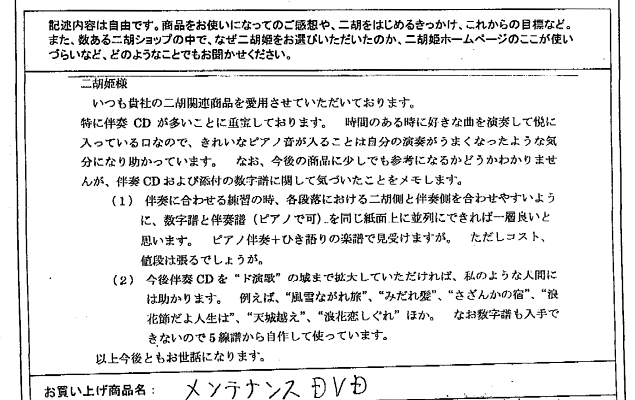 記述内容は自由です。商品をお使いになってのご感想や、二胡をはじめるきっかけ、これからの目標など。
また、数ある二胡ショップの中で、なぜ二胡姫をお選びいただいたのか、二胡姫ホームページのここが使い
づらいなど、どのようなことでもお聞かせください。
二胡姫様
いつも貴社の二胡関連商品を愛用させていただいております。
特に伴奏 CD が多いことに重宝しております。 時間のある時に好きな曲を演奏して悦に
入っている口なので、きれいなピアノ音が入ることは自分の演奏がうまくなったような気
分になり助かっています。 なお、今後の商品に少しでも参考になるかどうかわかりませ
んが、伴奏 CD および添付の数字譜に関して気づいたことをメモします。
(1) 伴奏に合わせる練習の時、各段落における二胡側と伴奏側を合わせやすいよう
に、数字譜と伴奏譜（ピアノで可）を同じ紙面上に並列にできれば一層良いと
思います。 ピアノ伴奏+ひき語りの楽譜で見受けますが。 ただしコスト、
値段は張るでしょうが。
(2) 今後伴奏 CD を “ド演歌” の域まで拡大していただければ、私のような人間に
は助かります。 例えば、“風雪ながれ旅”、“みだれ髪”、“さざんかの宿”、“浪
花節だよ人生は”、“天城越え”、“浪花恋しぐれ” ほか。 なお数字譜も入手で
きないので 5 線譜から自作して使っています。
以上今後ともお世話になります。
お買い上げ商品名： メンテナンスDVD